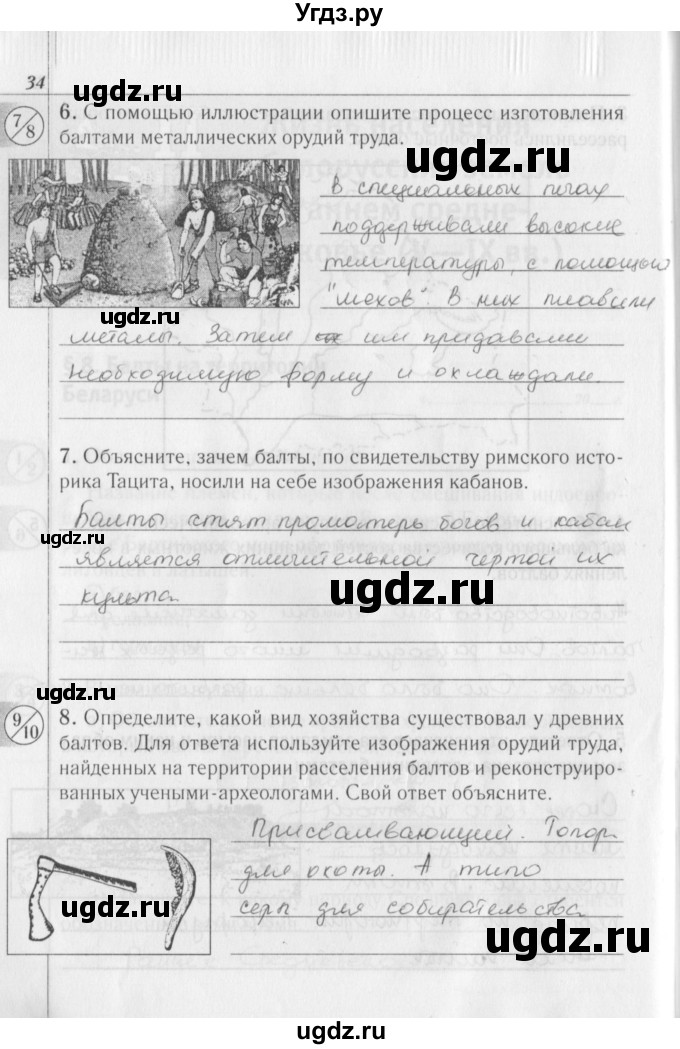 Угдз.ру
34
ugdz.ru
ugdz.ru
7/8
6. С помощью иллюстрации опишите процесс изготовления
балтами металлических орудий труда.
ugdz.ru
В специальных печах
поддерживали высокие
температуры, с помощью
"мехов". В них плавили
ugdz.ru
ugdz.ru
металы. Затем им придавали
необходимую форму и охлаждали.
ugdz.ru
7. Объясните, зачем балты, по свидетельству римского исто-
рика Тацита, носили на себе изображения кабанов.
Балты чтят проматерь богов и кабан
является отличительной чертой их
культа
ugdz.ru
ugdz.ru
9/10
8. Определите, какой вид хозяйства существовал у древних
балтов. Для ответа используйте изображения орудий труда,
найденных на территории расселения балтов и реконструиро-
ванных учеными-археологами. Свой ответ объясните.
Присваивающий. Топор
для охоты. А типо
серп для собирательства
ugdz.ru
ugdz.ru
ugdz.ru
ugdz.ru